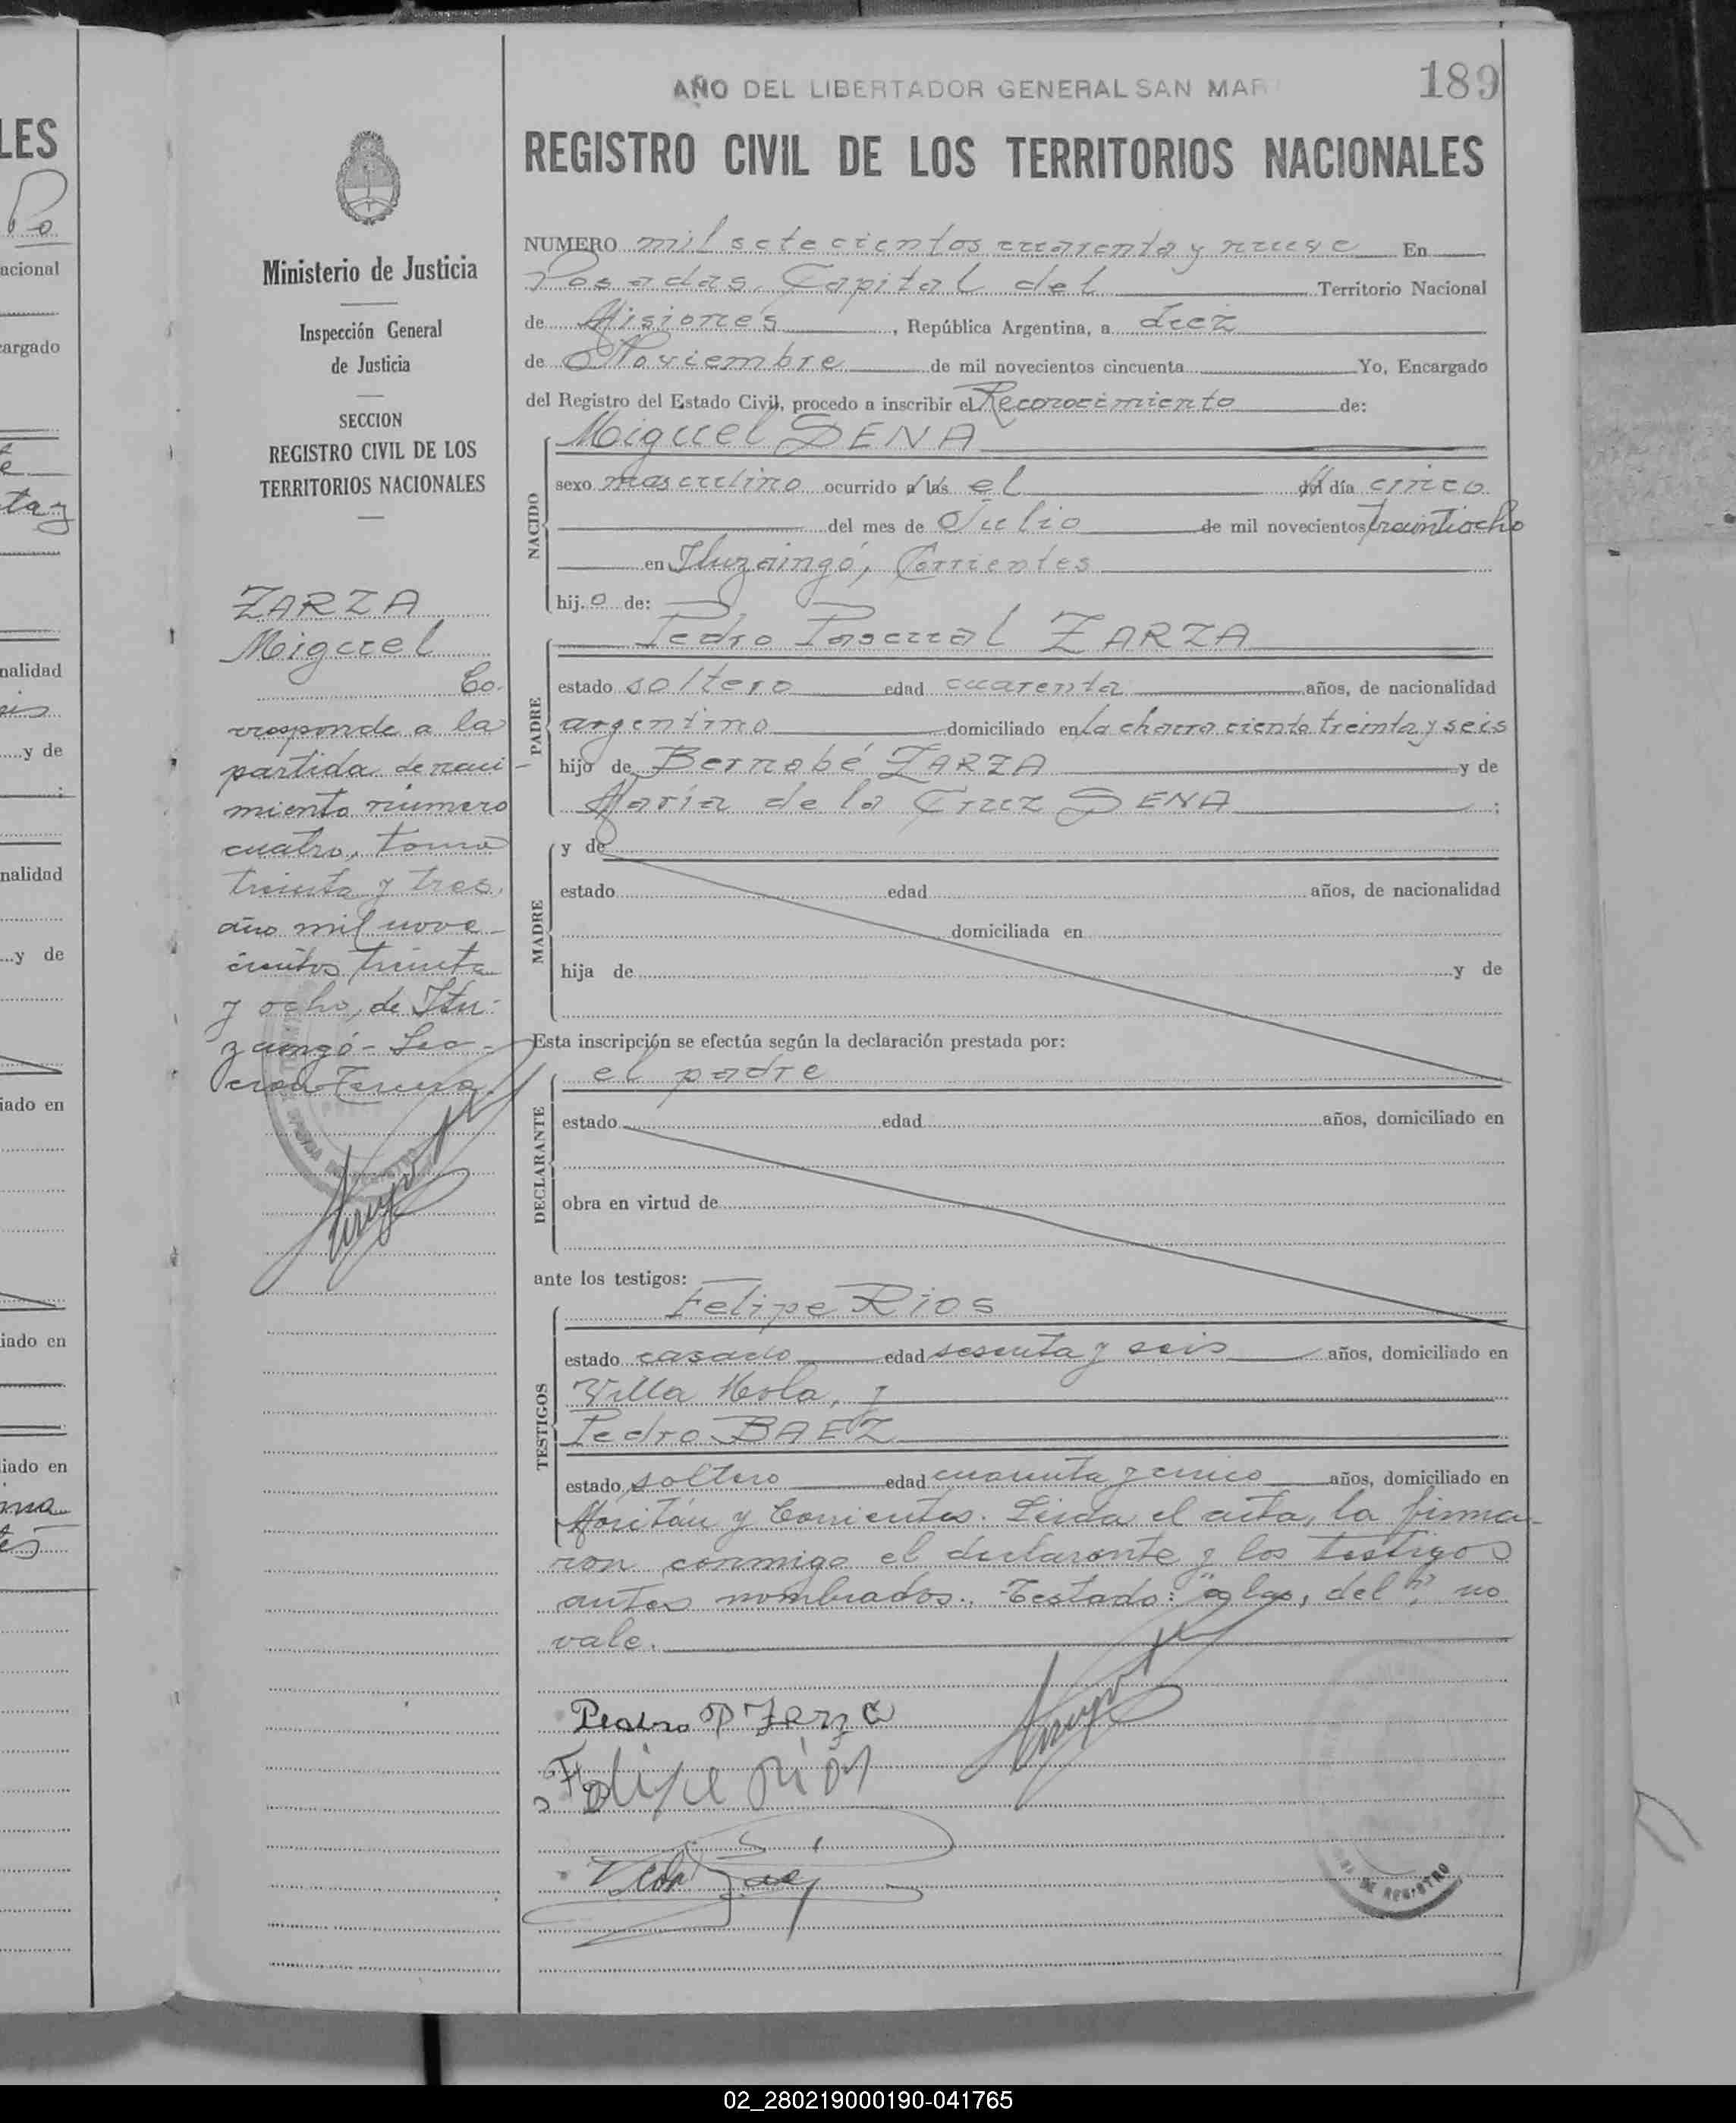 AÑO DEL LIBERTADOR GENERAL SAN MAR
189
REGISTRO CIVIL DE LOS TERRITORIOS NACIONALES
Ministerio de Justicia
Inspección General
de Justicia
SECCION
REGISTRO CIVIL DE LOS
TERRITORIOS NACIONALES
ZARZA
Miguel
Co-
rresponde a la
partida de naci-
miento número
cuatro, tomo
treinta y tres,
año mil nove-
cientos treinta
y ocho, de Itu-
zaingó - Sec-
ción Tercera.
NUMERO mil setecientos cuarenta y nueve En
Posadas, Capital del Territorio Nacional
de Misiones, República Argentina, a diez
de Noviembre de mil novecientos cincuenta Yo, Encargado
del Registro del Estado Civil, procedo a inscribir el Reconocimiento de:
Miguel SENA
NACIDO
sexo masculino ocurrido a las el del día cinco
del mes de Julio de mil novecientos treintiocho
en Ituzaingó, Corrientes
hijo de:
Pedro Pascual ZARZA
PADRE
estado soltero edad cuarenta años, de nacionalidad
argentino domiciliado en la chacra ciento treinta y seis
hijo de Bernabé ZARZA y de
María de la Cruz SENA ;
MADRE
y de
estado edad años, de nacionalidad
domiciliada en
hija de y de
Esta inscripción se efectúa según la declaración prestada por:
el padre
DECLARANTE
estado edad años, domiciliado en
obra en virtud de
ante los testigos:
Felipe RIOS
TESTIGOS
estado casado edad sesenta y seis años, domiciliado en
Villa Mola, y
Pedro BAEZ
estado soltero edad cuarenta y cinco años, domiciliado en
Moritán y Corrientes. Leida el acta, la firma-
ron conmigo el declarante y los testigos
antes nombrados. Testado: "a las, del", no
vale.
Pedro P Zarza
Felipe Rios
Pedro Baez
DE REGISTRO
LES
Po
acional
cargado
nalidad
y de
nalidad
y de
iado en
iado en
iado en
02_280219000190-041765